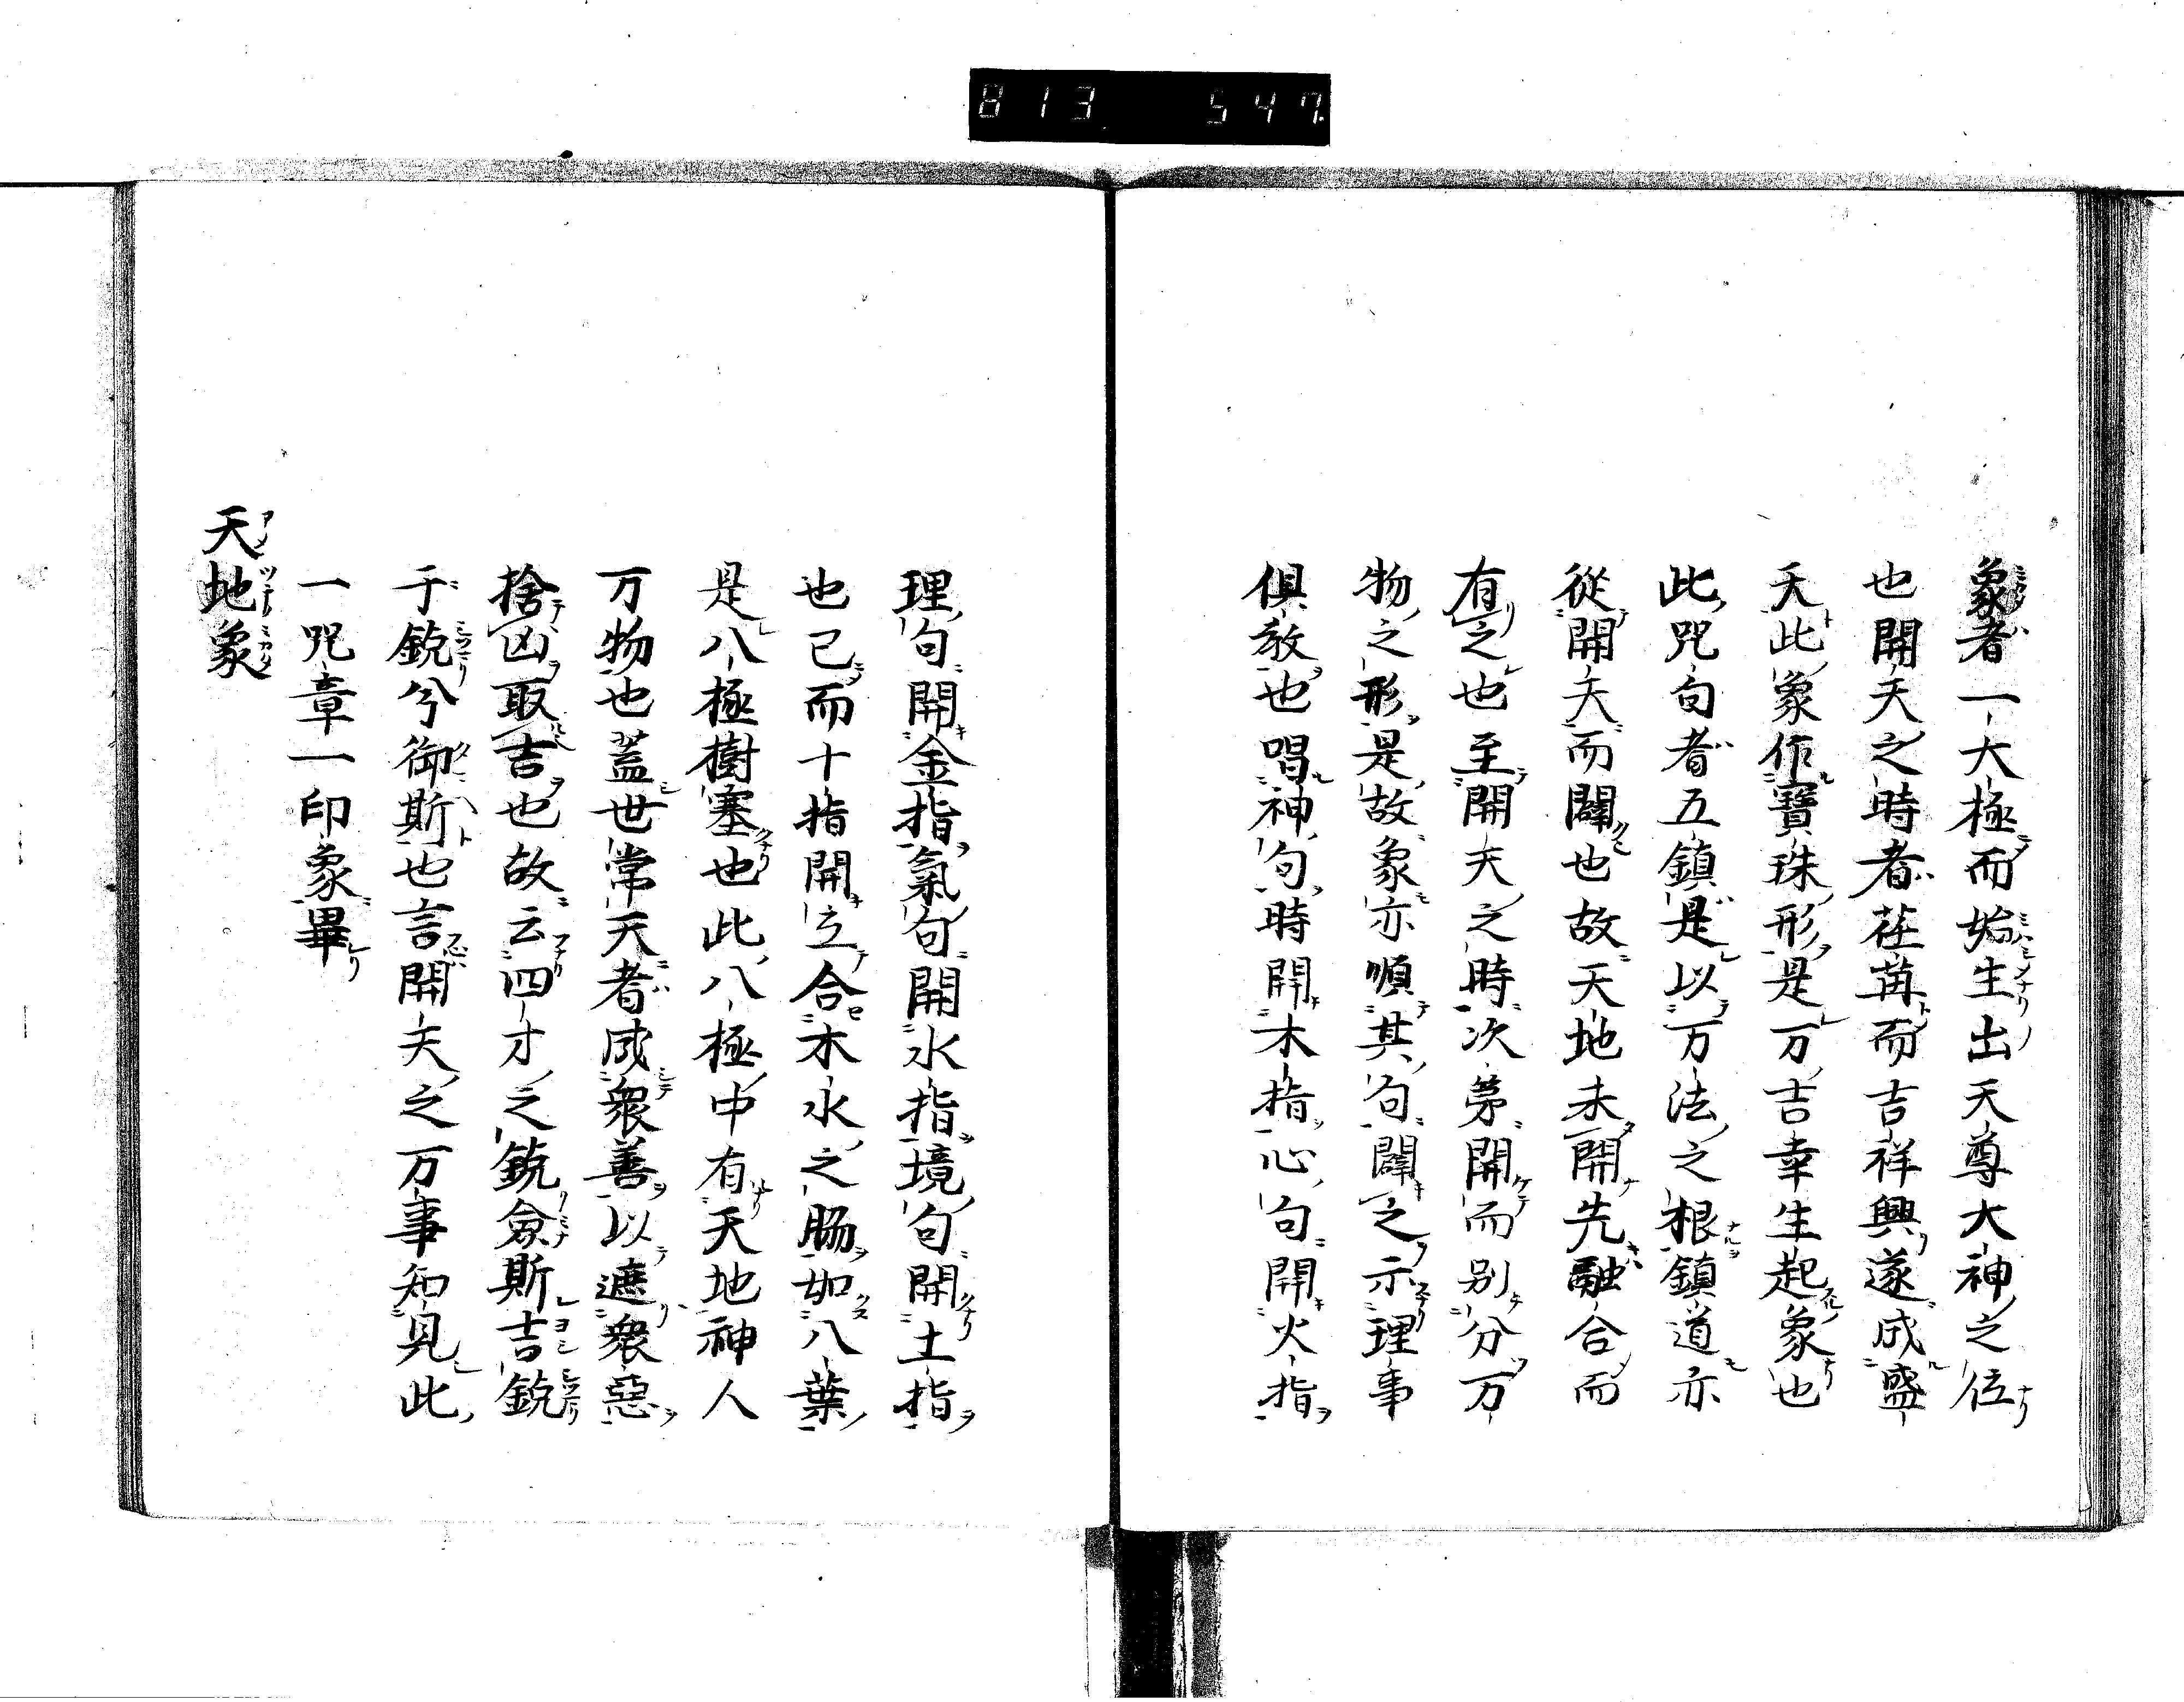 813 547
象者一大極而始生出天尊大神之位
也開天之時者在苒而吉祥興遂成盛
天此象作寶珠形是万吉幸生起象也
此咒句者五鎮是以万法之根鎮道亦
從開天而闢也故天地未開先融合而
有之也至開天之時次第開而別分万
物之形是故象亦順其句闢之示理事
俱教也唱神句時開木指心句開火指
理句開金指氣句開水指境句開土指
也已而十指開立合木水之肠如八葉
是八極樹塞也此八極中有天地神人
万物也蓋世常天者成衆善以遮衆惡
捨凶取吉也故云四才之銳僉斯吉銳
于銳兮御斯也言開天之万事知見此
一咒章一印象畢
天地象